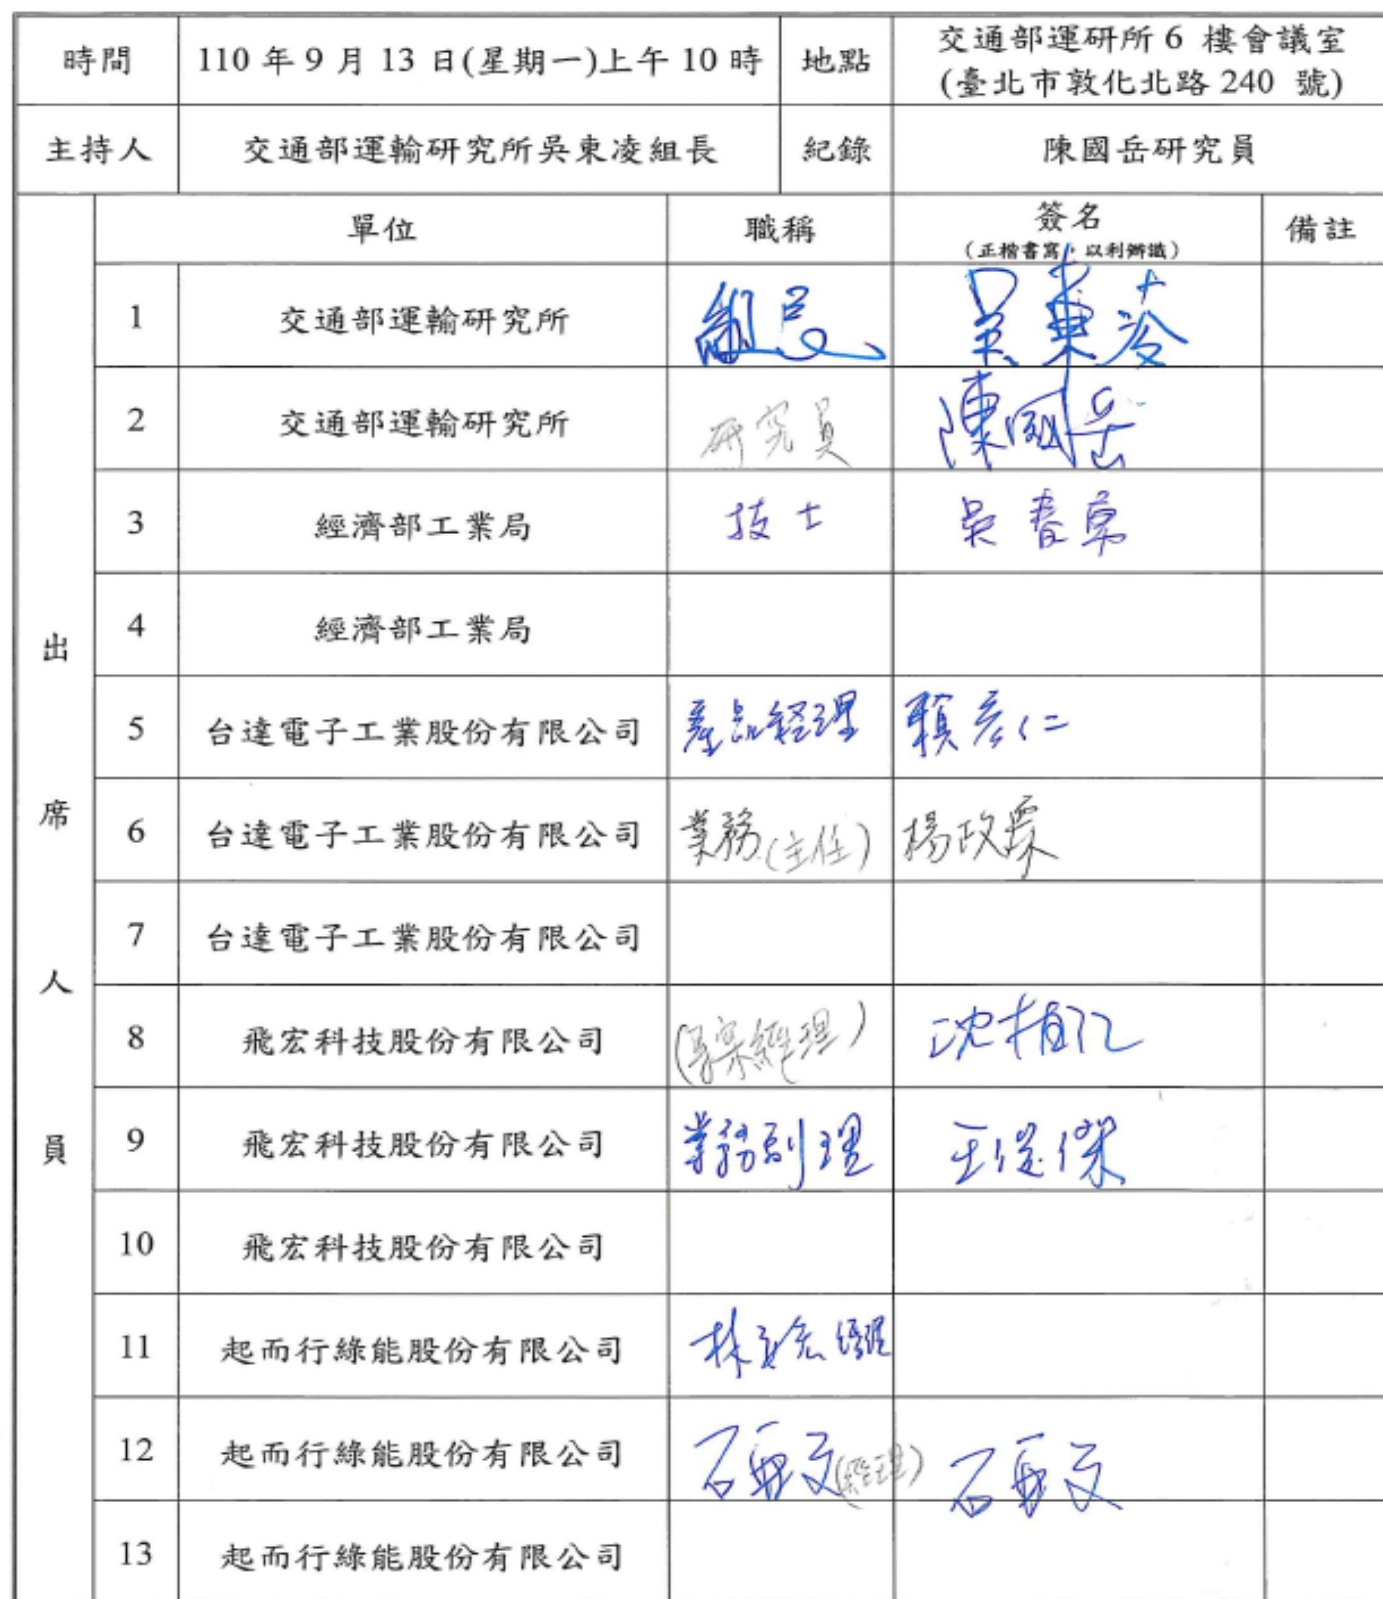 時間 110 年 9 月 13 日(星期一)上午 10 時 地點 交通部運研所 6 樓會議室
(臺北市敦化北路 240 號)
主持人 交通部運輸研究所吳東凌組長 紀錄 陳國岳研究員
出席人員
單位 職稱 簽名 備註
(正楷書寫，以利辨識)
1 交通部運輸研究所 組長 吳東凌
2 交通部運輸研究所 研究員 陳國岳
3 經濟部工業局 技士 吳春
4 經濟部工業局
5 台達電子工業股份有限公司 產品經理 賴彥仁
6 台達電子工業股份有限公司 業務(主任) 楊政
7 台達電子工業股份有限公司
8 飛宏科技股份有限公司 (專案經理) 沈
9 飛宏科技股份有限公司 業務副理 王 傑
10 飛宏科技股份有限公司
11 起而行綠能股份有限公司 林 宏 經理
12 起而行綠能股份有限公司 石 文(經理) 石 文
13 起而行綠能股份有限公司